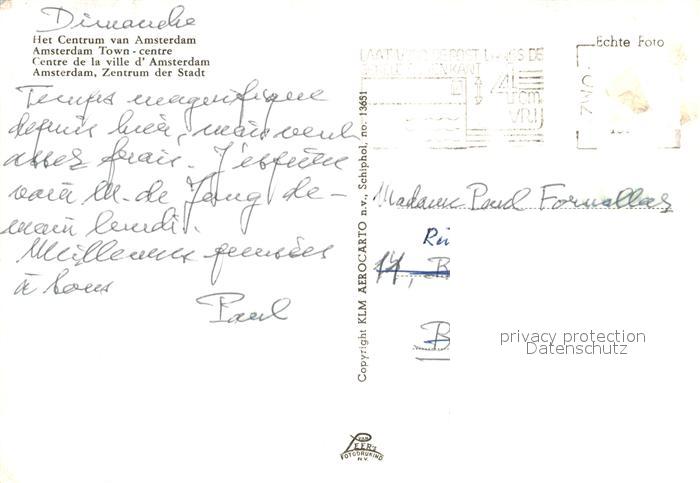 Dimanche
Het Centrum van Amsterdam
Amsterdam Town - centre
Centre de la ville d' Amsterdam
Amsterdam, Zentrum der Stadt
Temps magnifique
depuis hier, mais vent
assez frais. J'espère
voir M. de Jong de-
main lundi.
Meilleures pensées
à tous
Paul
Copyright KLM AEROCARTO n.v., Schiphol, no. 13651
LAAT VOOR DE POST LANGS DE
4 cm
VRIJ
Echte Foto
Madame Paul
14, B
B
privacy protection
Datenschutz
VAN
LEER's
FOTODRUKIND
N.V.